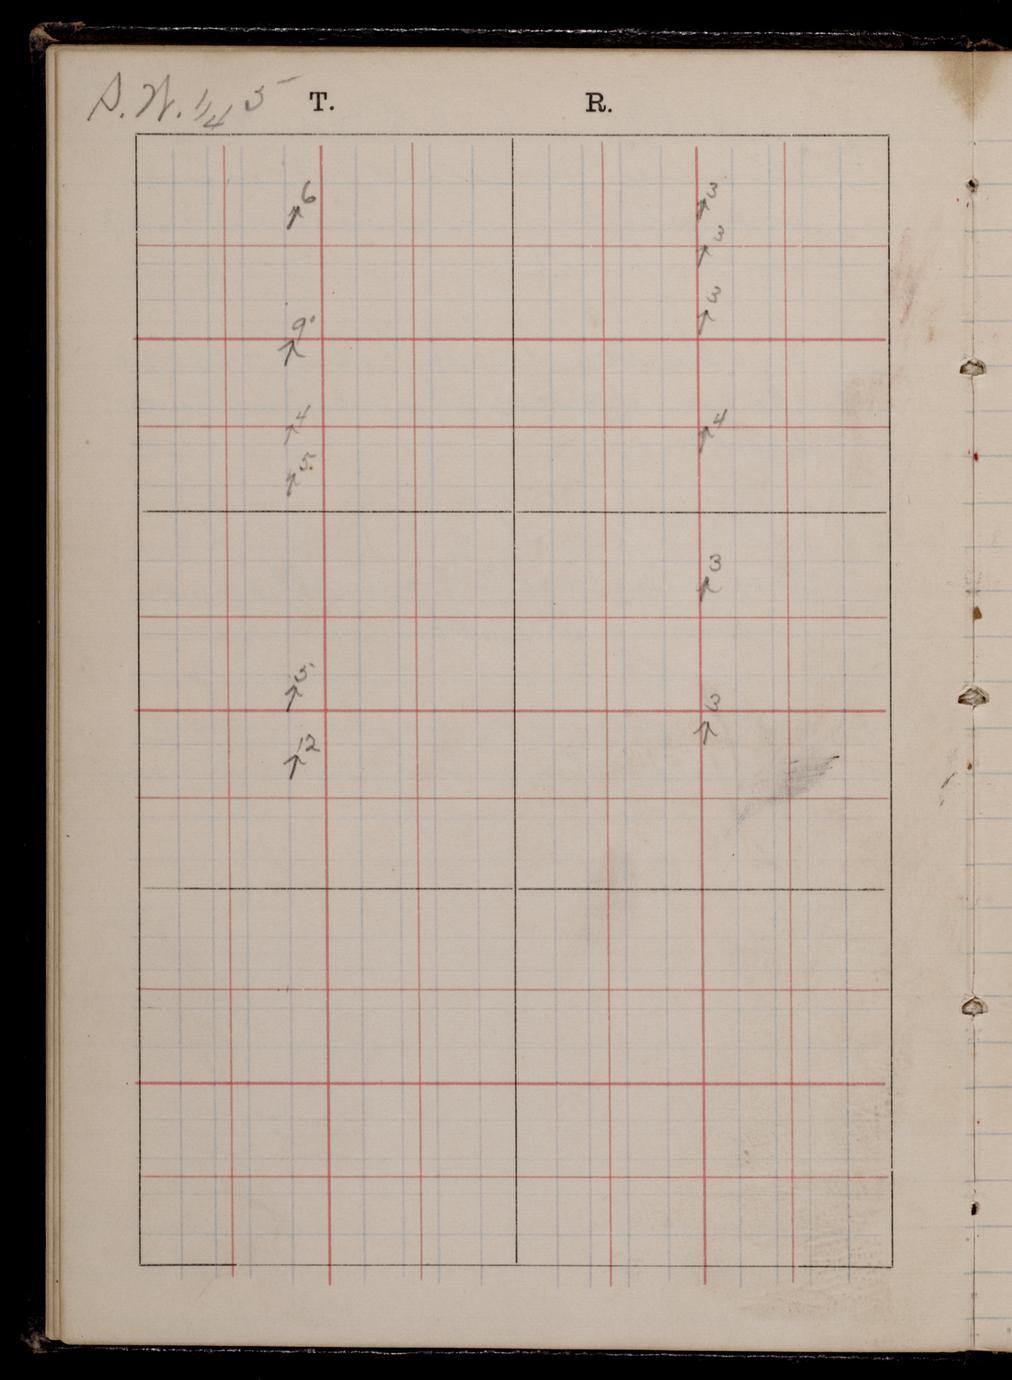 S.W. 1/4 5 T. R.
6 3
3
9 3
4 4
5
3
5 3
12